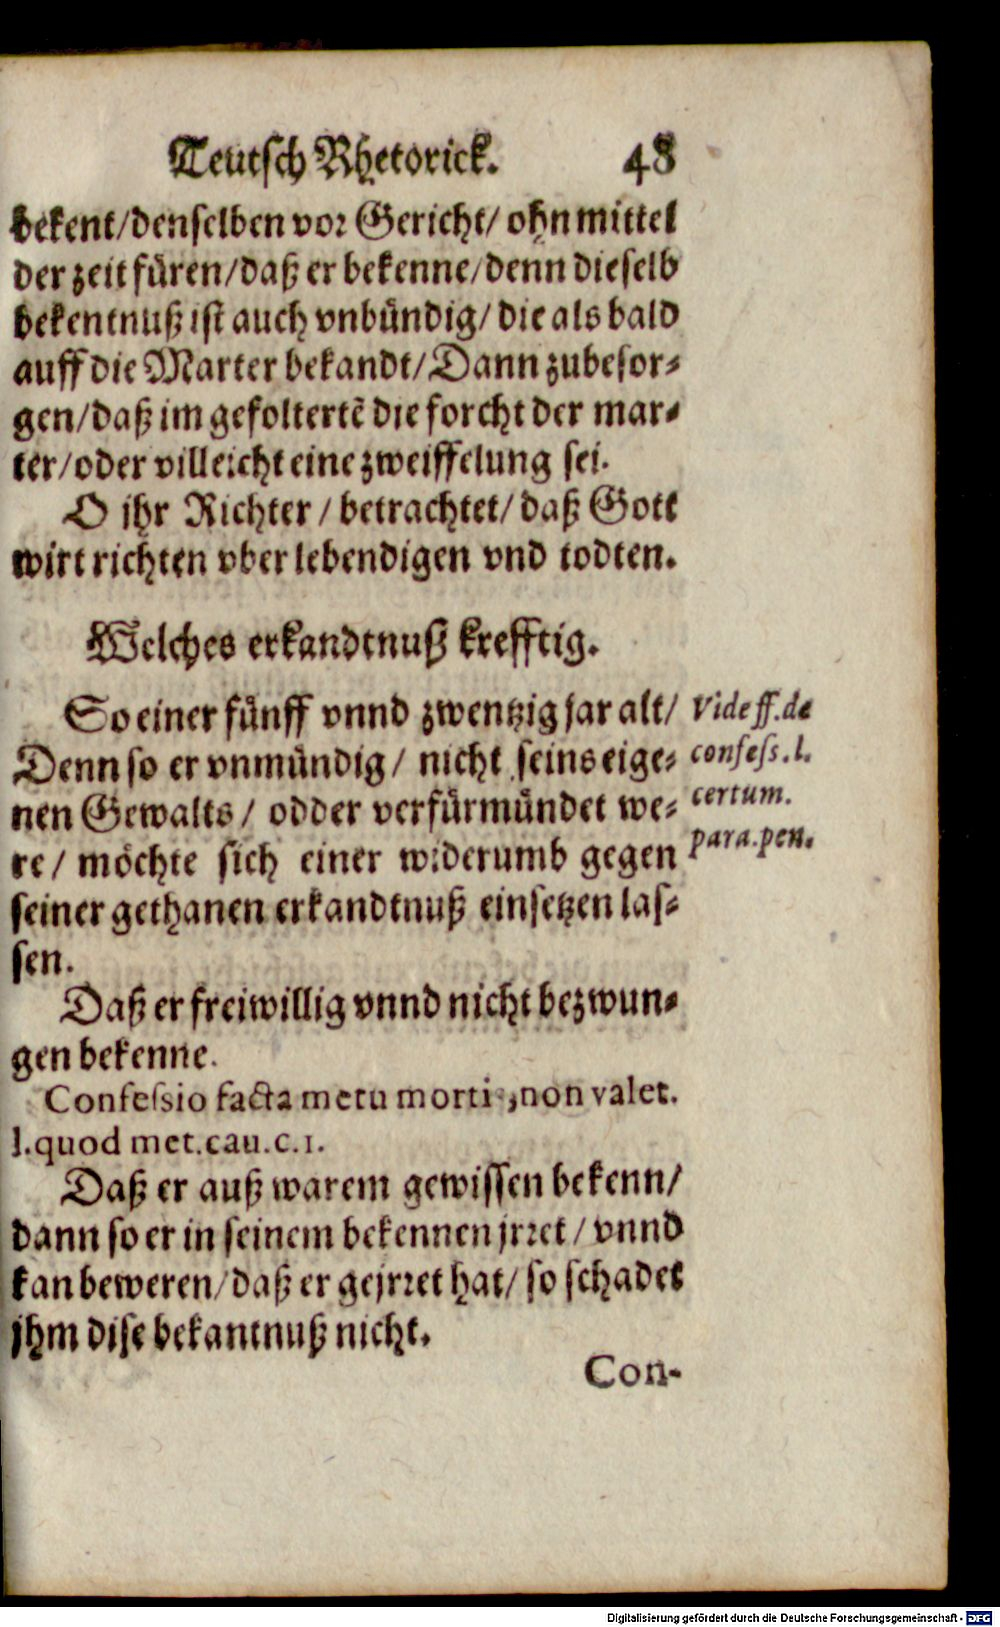 Teutsch Rhetorick. 48
bekent/denselben vor Gericht/ ohn mittel
der zeit füren/daß er bekenne/denn dieselb
bekentnuß ist auch vnbündig/ die als bald
auff die Marter bekandt/Dann zubesor-
gen/daß im gefoltertẽ die forcht der mar-
ter/oder villeicht eine zweiffelung sei.
O ihr Richter / betrachtet/ daß Gott
wirt richten vber lebendigen vnd todten.
Welches erkandtnuß krefftig.
So einer fünff vnnd zwentzig jar alt/
Denn so er vnmündig / nicht seins eige-
nen Gewalts / odder verfürmündet we-
re / möchte sich einer widerumb gegen
seiner gethanen erkandtnuß einsetzen las-
sen.
Vide ff. de
confess. l.
certum.
para. pen.
Daß er freiwillig vnnd nicht bezwun-
gen bekenne.
Confessio facta metu morti, non valet.
l. quod met. cau. c. 1.
Daß er auß warem gewissen bekenn/
dann so er in seinem bekennen jrret / vnnd
kan beweren/daß er gejrret hat/ so schadet
jhm dise bekantnuß nicht.
Con-
Digitalisierung gefördert durch die Deutsche Forschungsgemeinschaft - DFG